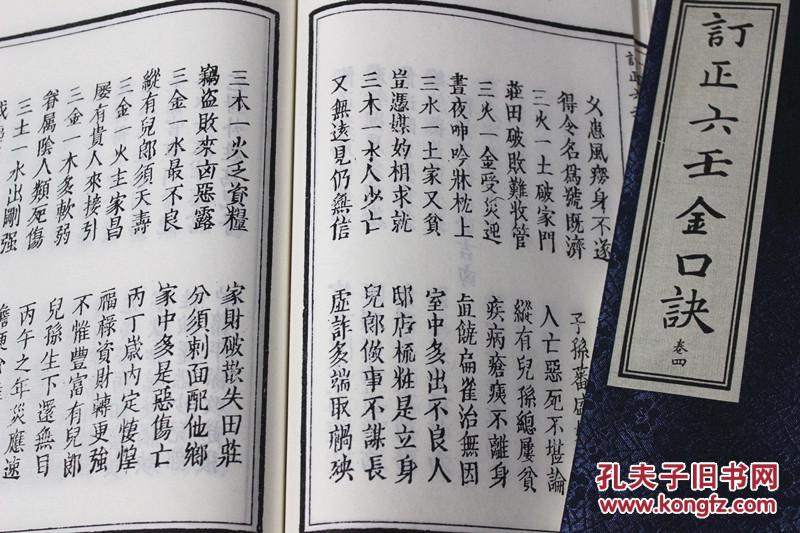 訂正六壬金口訣
卷四
父患風癆身不遂
得令名為號既濟 子孫蕃盛
三火一土破家門 人亡惡死不堪論
莊田破敗難收管 縱有兒孫總屢貧
三火一金受災迍 疾病瘡痍不離身
晝夜呻吟牀枕上 直饒扁雀治無因
三水一土家又貧 室中多出不良人
豈憑媒妁相求就 邸店梳粧是立身
三木一水人少亡 兒郎做事不謀長
又無遠見仍無信 虛許多端取禍殃
三木一火乏資糧 家財破散失田莊
竊盜敗來凶惡露 分須刺面配他鄉
三金一水最不良 家中多是惡傷亡
縱有兒郎須夭壽 丙丁歲內定悽惶
三金一火主家昌 福祿資財轉更強
屢有貴人來接引 不惟豐富有兒郎
三金一木多軟弱 兒孫生下還無目
眷屬陰人類死傷 丙午之年災應速
三土一水出剛強
孔夫子旧书网
www.kongfz.com